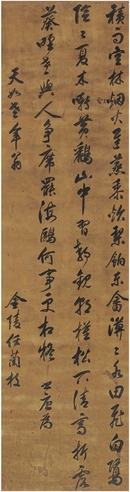 積雨空林烟火遲蒸藜炊黍餉東菑漠漠水田飛白鷺
陰陰夏木囀黃鸝山中習靜觀朝槿松下清齋折露
葵野老與人爭席罷海鷗何事更相疑
天如老年翁
金陵任蘭枝